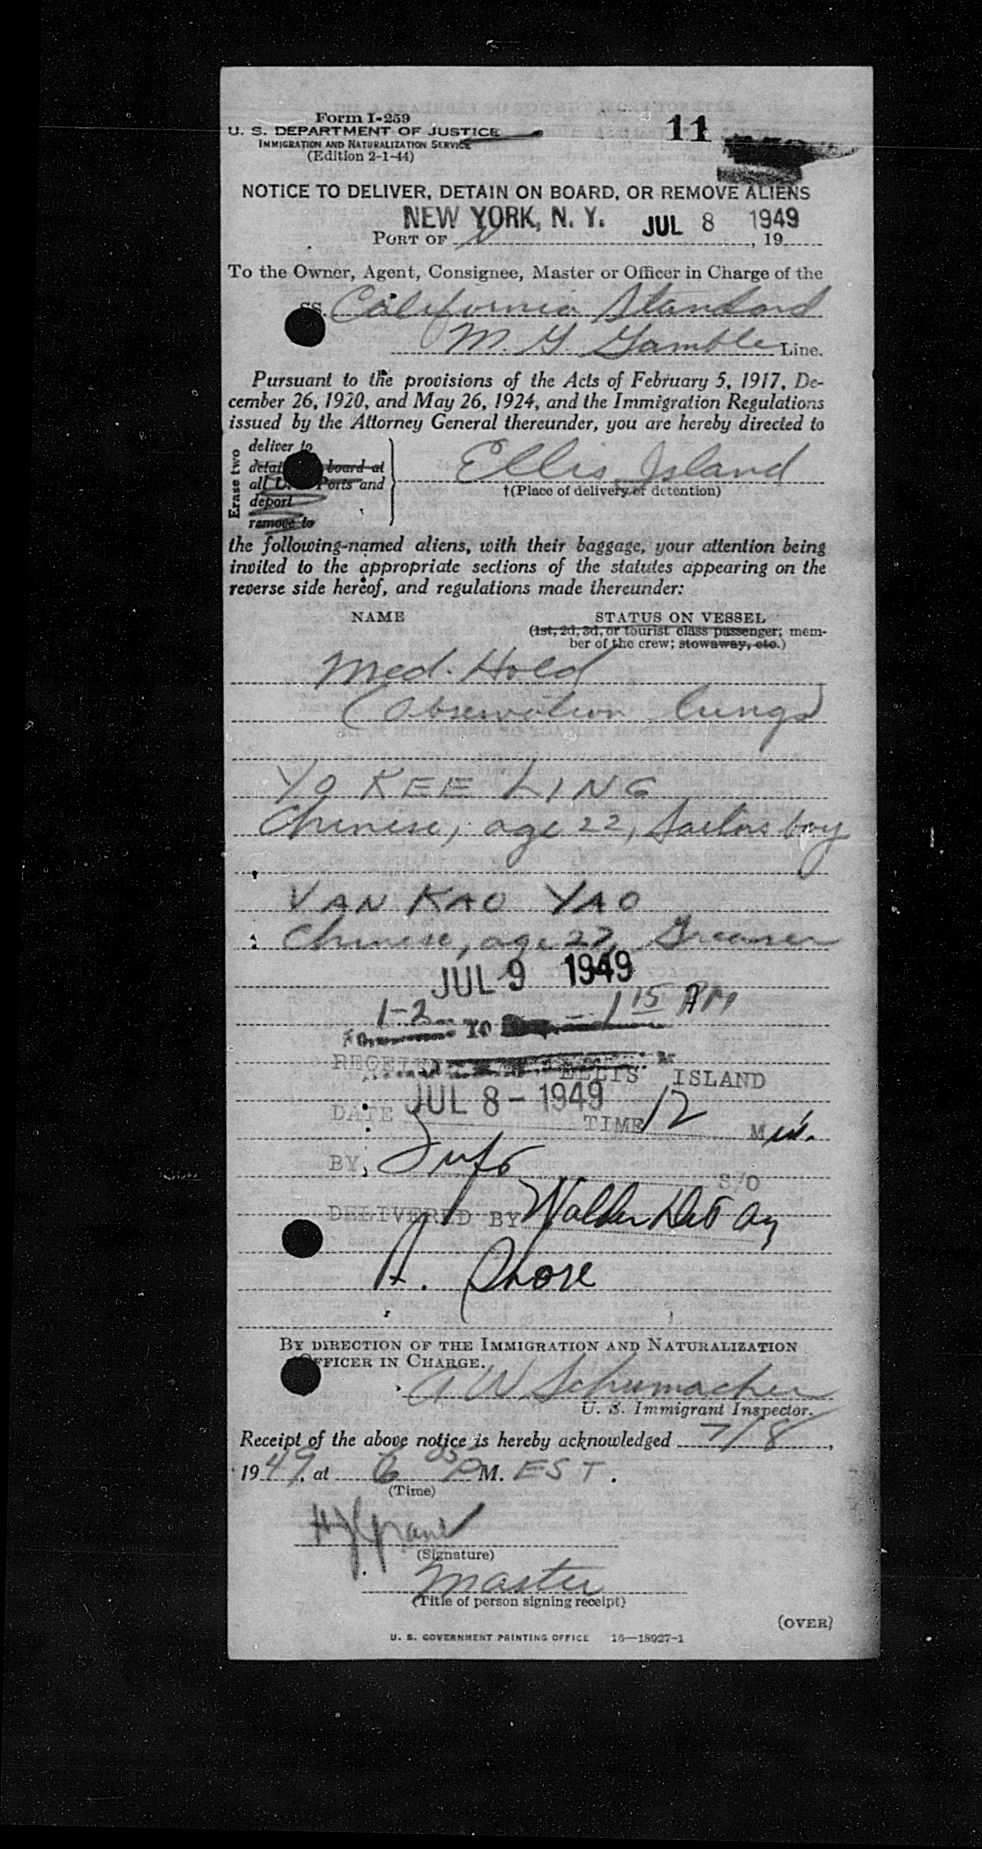 Form I-259
U. S. DEPARTMENT OF JUSTICE
IMMIGRATION AND NATURALIZATION SERVICE
(Edition 2-1-44)
11
NOTICE TO DELIVER, DETAIN ON BOARD, OR REMOVE ALIENS
NEW YORK, N. Y. JUL 8 1949
PORT OF , 19
To the Owner, Agent, Consignee, Master or Officer in Charge of the
SS. California Standard
M. G Gamble Line.
Pursuant to the provisions of the Acts of February 5, 1917, De-
cember 26, 1920, and May 26, 1924, and the Immigration Regulations
issued by the Attorney General thereunder, you are hereby directed to
Erase two
deliver to
board at
all Ports and
deport
remove to
Ellis Island
†(Place of delivery or detention)
the following-named aliens, with their baggage, your attention being
invited to the appropriate sections of the statutes appearing on the
reverse side hereof, and regulations made thereunder:
NAME STATUS ON VESSEL
(1st, 2d, 3d, or tourist class passenger; mem-
ber of the crew; stowaway, etc.)
Med. Hold
(Observation lungs)
YO KEE LING
Chinese, age 22, Sailors boy
VAN KAO YAO
Chinese, age 27,
JUL 9 1949
1-2 TO 1 15 PM
ELLIS ISLAND
DATE JUL 8 - 1949 TIME 12 M
BY
DELIVERED BY
A. Shore
BY DIRECTION OF THE IMMIGRATION AND NATURALIZATION
OFFICER IN CHARGE.
A W Schumacher
U. S. Immigrant Inspector.
Receipt of the above notice is hereby acknowledged 7/8,
1949, at 6 05 P M. EST.
(Time)
(Signature)
Master
(Title of person signing receipt)
(OVER)
U. S. GOVERNMENT PRINTING OFFICE 16—18927-1